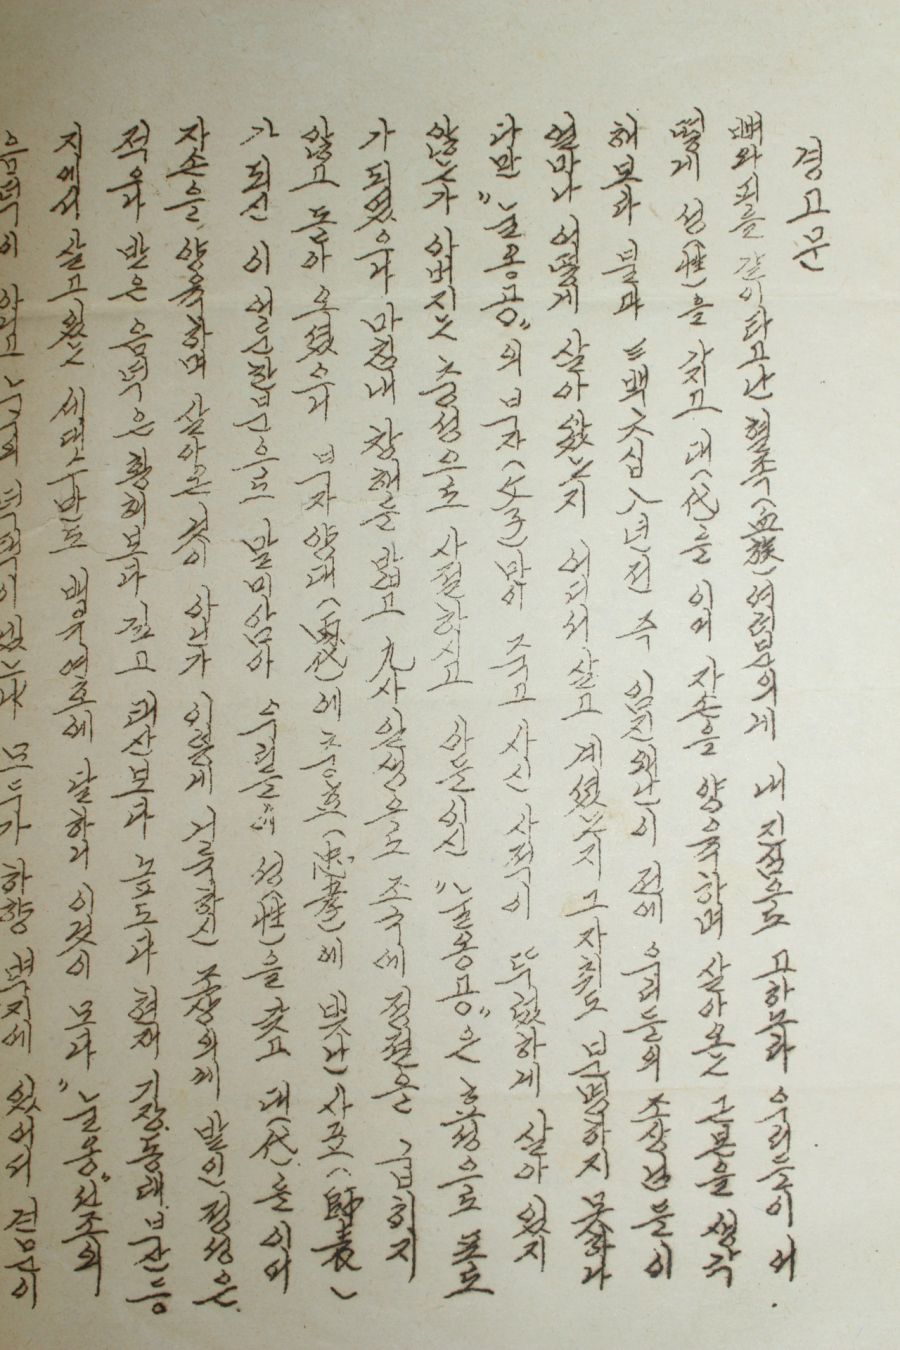 경고문
뼈와 피를 같이 타고난 혈족(血族) 여러분의게 내 진심으로 고하무라 우리들이 어
떻게 성(姓)을 가지고 대(代)를 이며 자손을 양육하며 살아온 근본을 생각
해보라 불과 三백六십八년전 즉 임진왜란이 전에 우리들의 조상님들이
얼마나 어떻게 살아 왔는지 어디서 살고 계셨는지 그 자취도 분명하지 못하다
다만 "눌옹공"의 부자(父子)만이 죽고 사신 사적이 뚜렸하게 살아 있지
않는가 아버지는 충성으로 사절하시고 아들이신 "눌옹공"은 효성으로 포로
가 되였으라 마침내 창해를 밟고 九사일생으로 조국에 정절은 굽히지
않고 돌아 오셨으니 부자 양대(兩代)에 충효(忠孝)에 빛난 사표(師表)
가 되신 이 어른한분으로 말미암아 우리들에 성(姓)을 갖고 대(代)를 이며
자손을 양육하며 살아온 것이 아닌가 이렇게 거룩하신 조상의게 발인 정성은
적으나 받은 음덕은 황해보다 깊고 태산보다 높도다 현재 기장 동래 부산 등
지에서 살고있는 세대수만도 백여호에 달하니 이것이 모다 "눌옹"선조의
음덕이 아니고 누구의 덕택이 있는냐 모두가 하향 벽지에 있어서